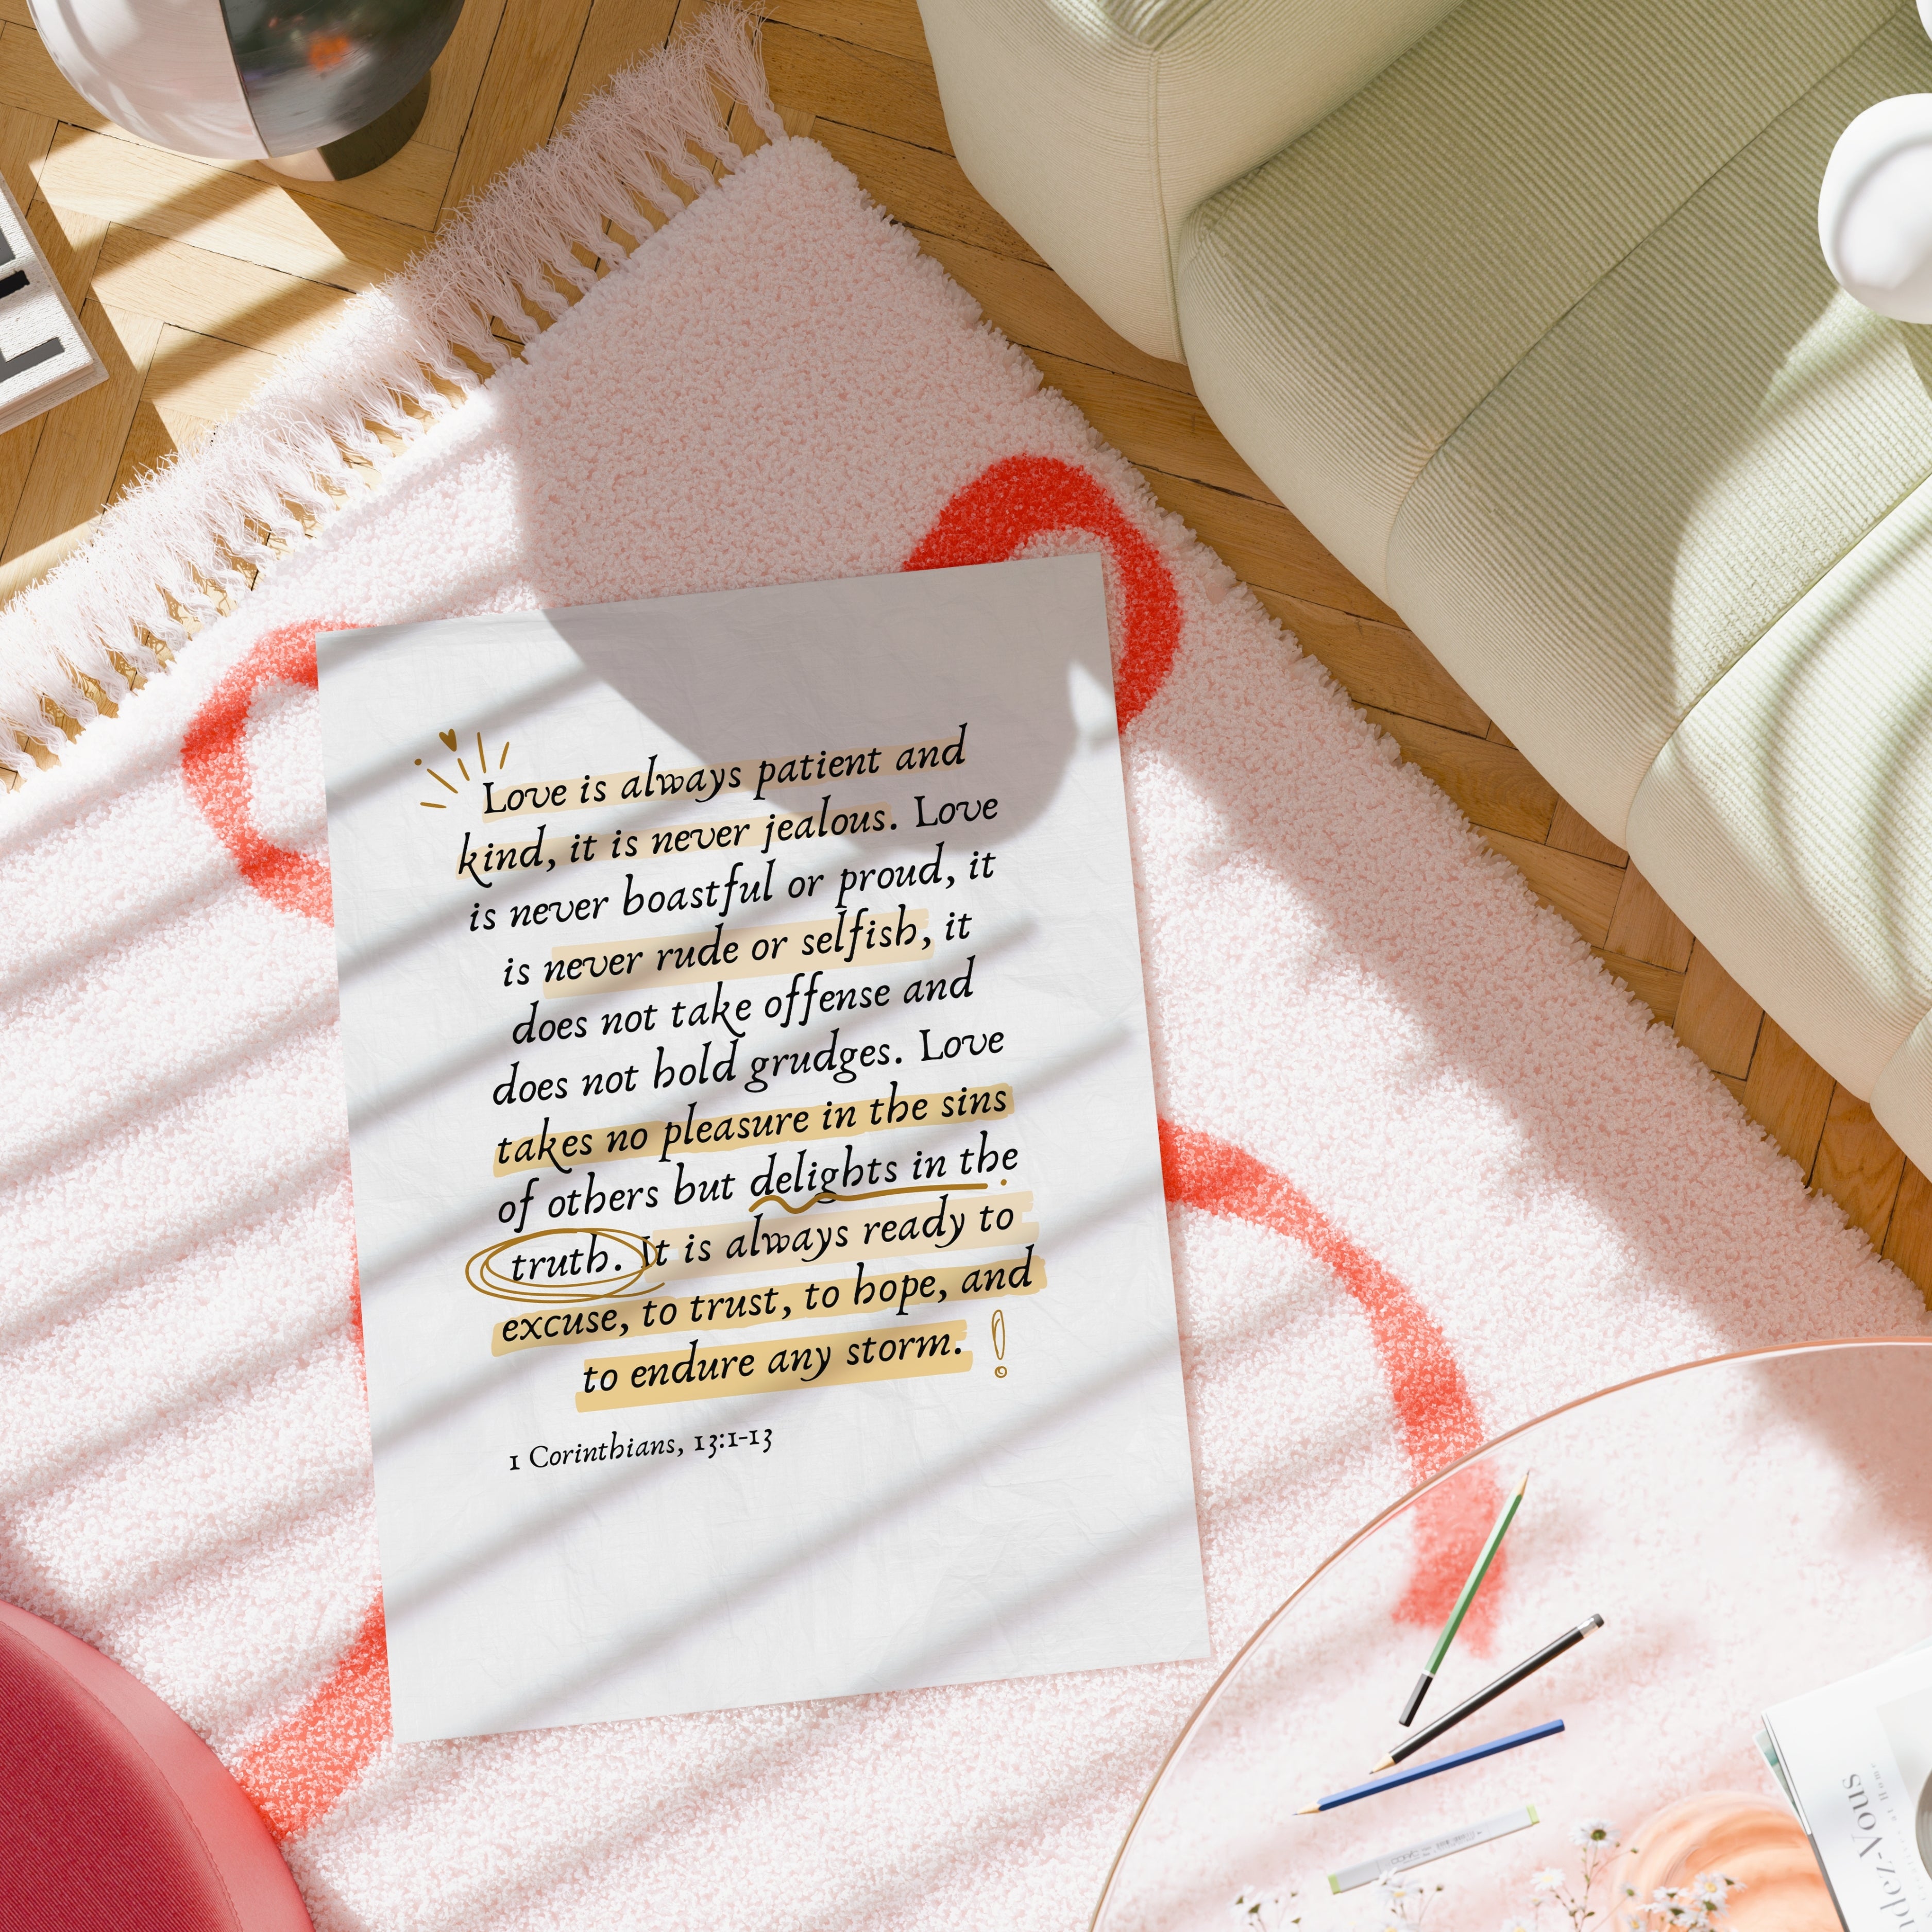 Love is always patient and
kind, it is never jealous. Love
is never boastful or proud, it
is never rude or selfish, it
does not take offense and
does not hold grudges. Love
takes no pleasure in the sins
of others but delights in the
truth. It is always ready to
excuse, to trust, to hope, and
to endure any storm.
1 Corinthians, 13:1-13
at Home